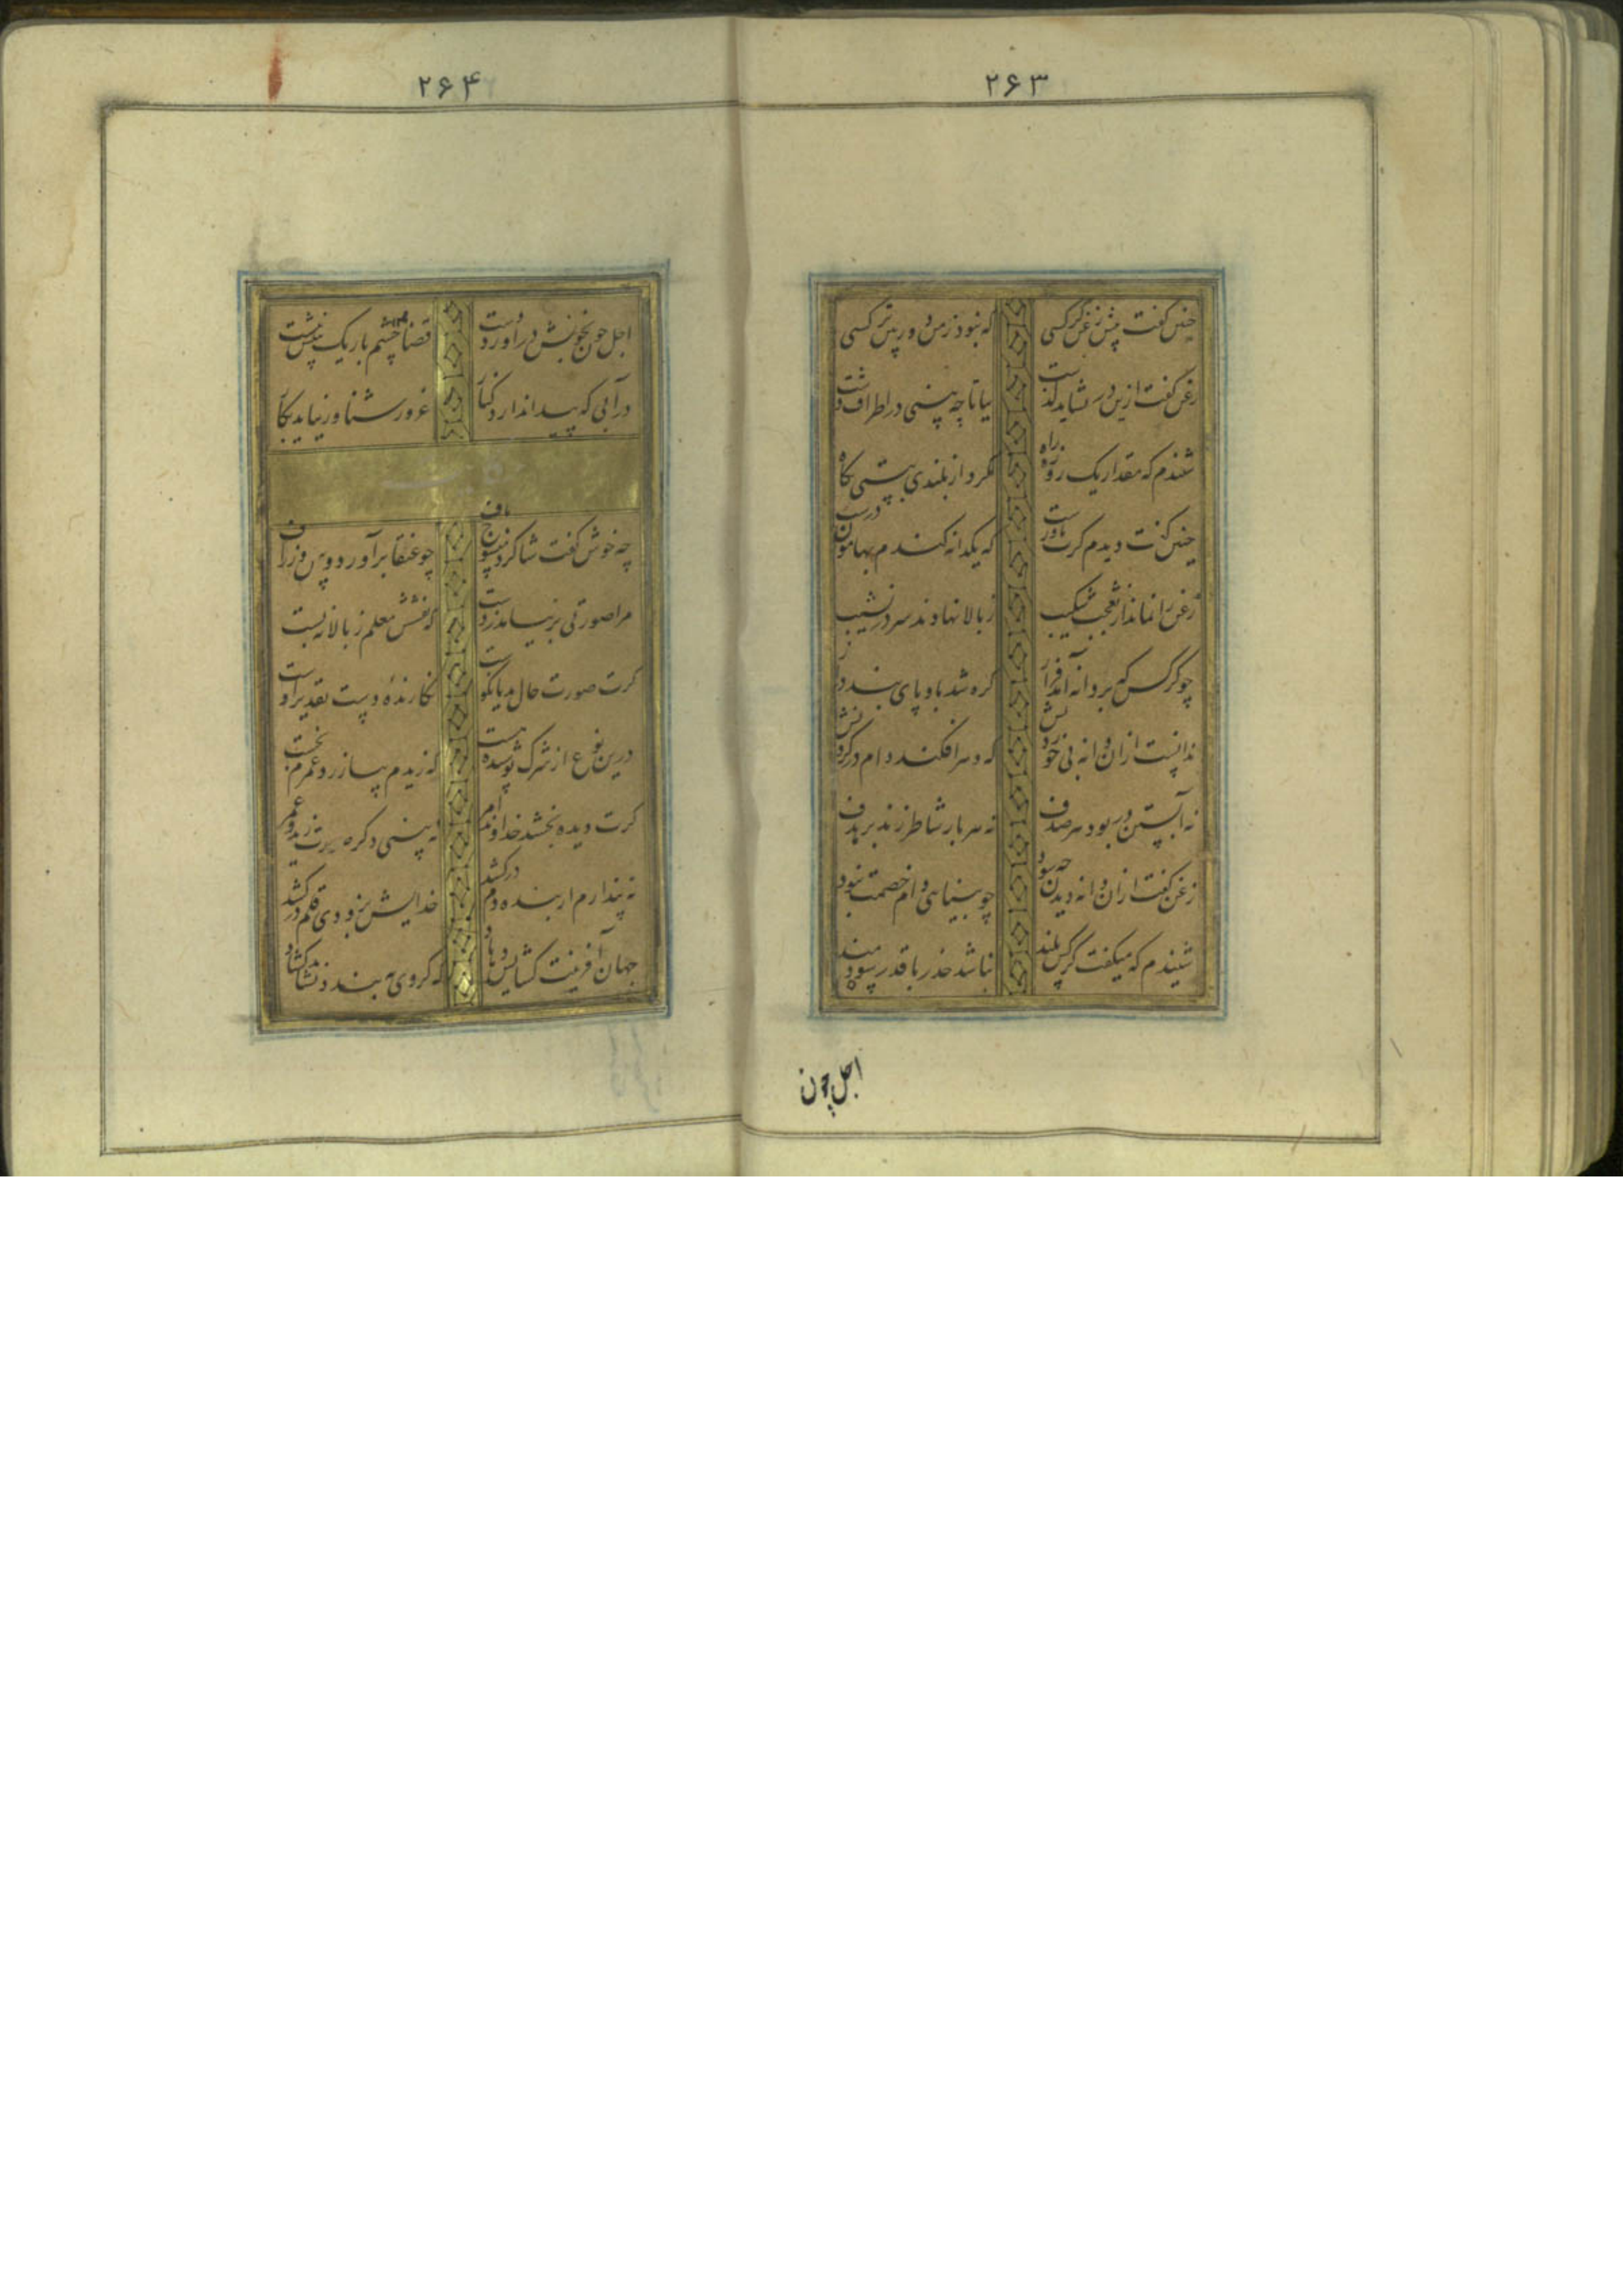 ۲۶۳
چنین گفت پیش زغن کرکسی که نبود ز من دوربین‌تر کسی
زغن گفت ازین در نشاید گذشت بیا تا چه بینی در اطراف دشت
شنیدم که مقدار یک روزه راه بکرد از بلندی بپستی نگاه
چنین گفت دیدم گرت باورست که یکدانه گندم بهامون درست
زغن را نماند از تعجب شکیب ز بالا نهادند سر در نشیب
چو کرکس بر دانه آمد فراز گره شد باو پای بندی دراز
ندانست ازان دانه بی خوردنش که دهر افکند دام در گردنش
نه آبستن در بود هر صدف نه هر بار شاطر زند بر هدف
زغن گفت ازان دانه دیدن چه سود چو بینایی دام خصمت نبود
شنیدم که میگفت گردن ببند نباشد حذر با قدر سودمند
اجل چون
۲۶۴
اجل چون بخونش درآورد دست قضا چشم باریک بینش ببست
در آبی که پیدا ندارد کنار غرور شناور نیاید بکار
حکایت
چه خوش گفت شاگرد منسوج باف چو عنقا برآورد و پیل و زراف
مرا صورتی بر نیاید ز دست که نقشش معلم ز بالا نبست
گرت صورت حال بد یا نکوست نگارنده دست تقدیر اوست
درین نوع از شرک پوشیده هست که زیدم بیازرد و عمرم بخست
گرت دیده بخشد خداوند امر نبینی دگر صورت زید و عمر
نپندارم ار بنده دم درکشد خدایش بروزی قلم درکشد
جهان آفرینت گشایش دهاد که گر وی ببندد نشاید گشاد